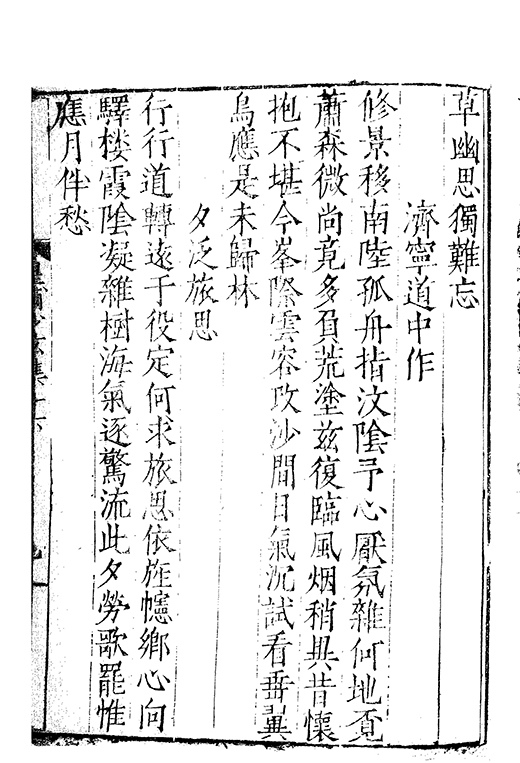 草幽思獨難忘
濟寧道中作
修景移南陸孤舟指汶陰予心厭氛雜何地覔
蕭森微尚竟多負荒塗兹復臨風烟稍與昔懷
抱不堪今峯際雲容改沙間日氣沉試看垂翼
鳥應是未歸林
夕泛旅思
行行道轉遠于役定何求旅思依旌幰鄉心向
驛楼霞陰凝雜樹海氣逐驚流此夕勞歌罷惟
應月伴愁